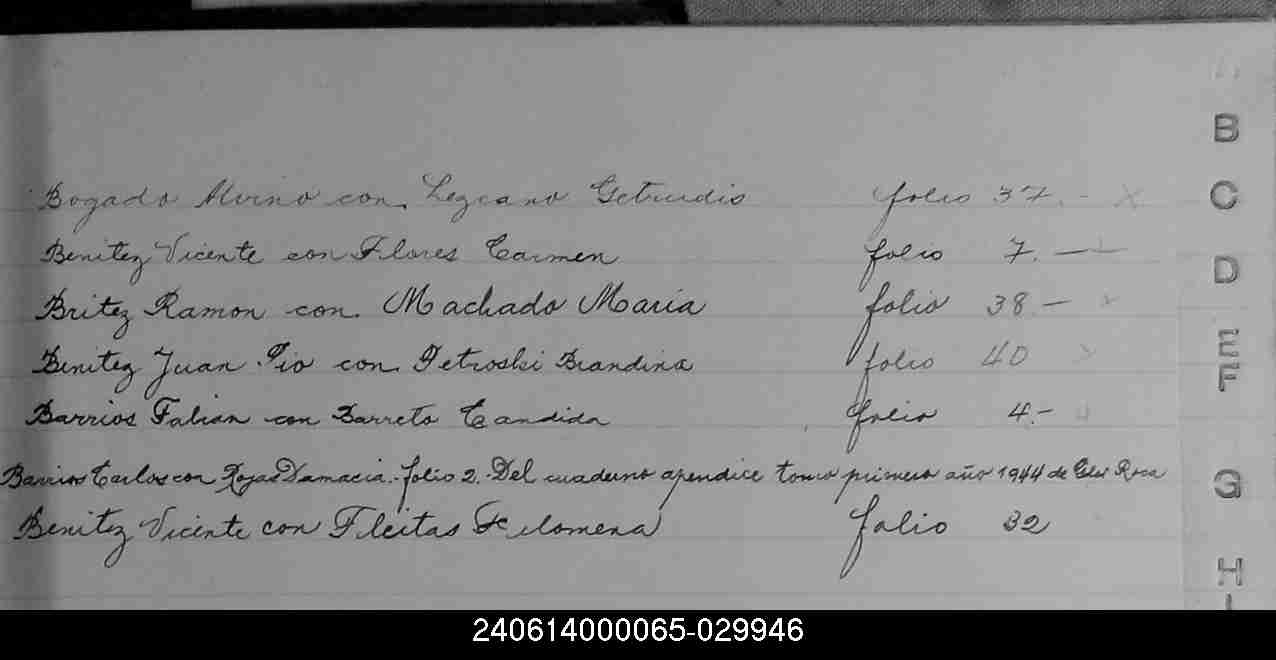 B
Bogado Alvino con Lezcano Getrudis folio 37.- X
C
Benitez Vicente con Flores Carmen folio 7. —
D
Britez Ramon con Machado Maria folio 38 - x
E
Benitez Juan Pio con Petroski Brandina folio 40
F
Barrios Fabian con Barreto Candida folio 4.-
Barrios Carlos con Rojas Damacia. folio 2. Del cuaderno apendice tomo primero año 1944 de Roca
G
Benitez Vicente con Fleitas Filomena folio 32
H
I
240614000065-029946